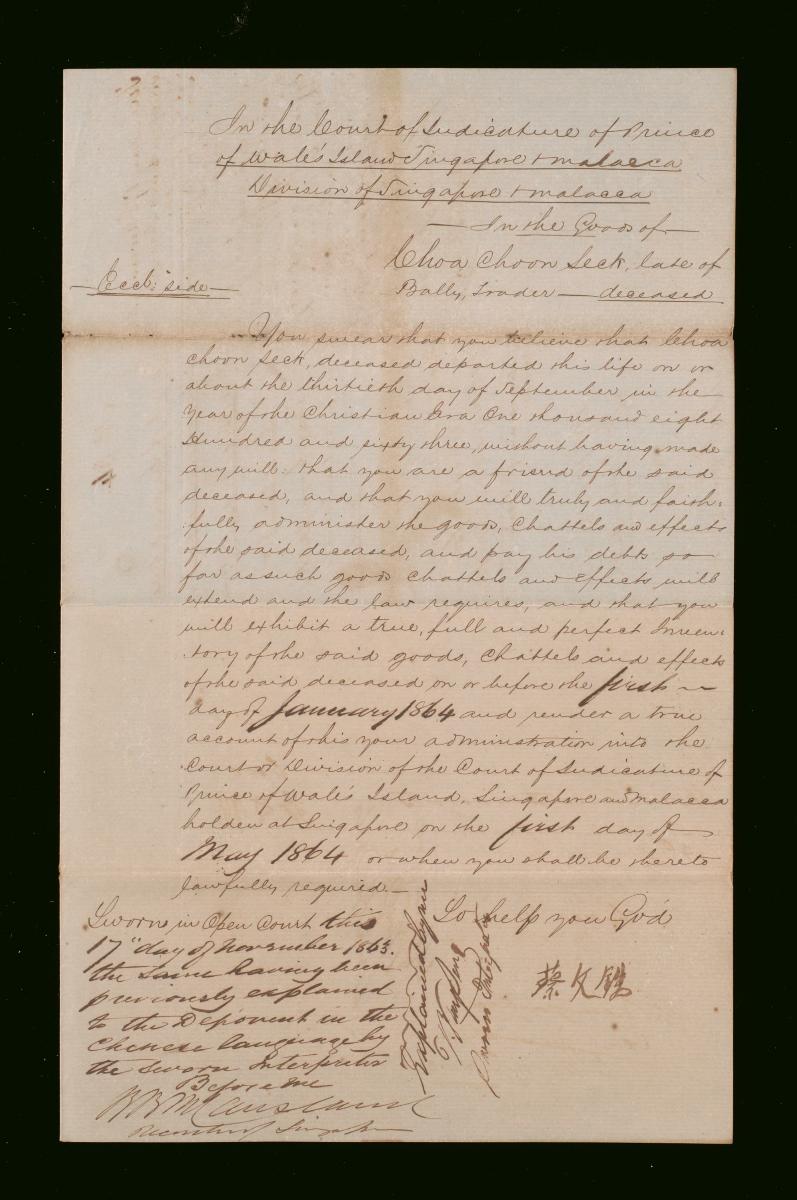 In the Court of Judicature of Prince
of Wale's Island Singapore & malacca
Division of Singapore & malacca
In the Goods of
Choa Choon Seck, late of
Bally, Trader — deceased
Eccl: side
You swear that you believe that Choa
Choon Seck, deceased departed this life on or
about the thirtieth day of September in the
Year of the Christian Era One thousand eight
Hundred and sixty three, without having made
any will: that you are a friend of the said
deceased, and that you will truly and faith:
:fully administer the goods, Chattels and effects
of the said deceased, and pay his debts so
far as such goods Chattels and Effects will
extend and the law requires, and that you
will exhibit a true, full and perfect Inven:
:tory of the said goods, Chattels and effects
of the said deceased on or before the first
day of January 1864 and render a true
account of this your administration into the
Court or Division of the Court of Judicature of
Prince of Wale's Island, Singapore and Malacca
holden at Singapore on the first day of
May 1864 or when you shall be thereto
lawfully required.—
So help you God
Sworn in Open Court this
17" day of November 1863.
the same having been
previously explained
to the Deponent in the
Chinese language by
the Sworn Interpreter
Before me
R B McCausland
Recorder of Singapore
Explained by me
Sworn Interpreter
蔡文